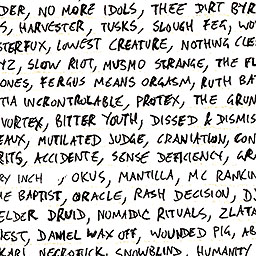 DER, NO MORE IDOLS, THEE DIRT BYR
S, HARVESTER, TUSKS, SLOUGH FEG, WO
STERFUX, LOWEST CREATURE, NOTHING CLE
YZ, SLOW RIOT, MUSMO STRANGE, THE FL
ONES, FERGUS MEANS ORGASM, RUTH BA
TIA INCONTROLABLE, PROTEX, THE GRUN
VORTEX, BITTER YOUTH, DISSED & DISMIS
EAUX, MUTILATED JUDGE, CRANIATION, CON
RITS, ACCIDENTE, SENSE DEFICIENCY, GRA
RY INCH, OKUS, MANTILLA, MC RANKIN
HE BAPTIST, ORACLE, RASH DECISION, DJ
ELDER DRUID, NOMADIC RITUALS, ZLATA
NEST, DANIEL WAX OFF, WOUNDED PIG, AB
KARI, NECROTICK, SNOWBLIND, HUMANITY